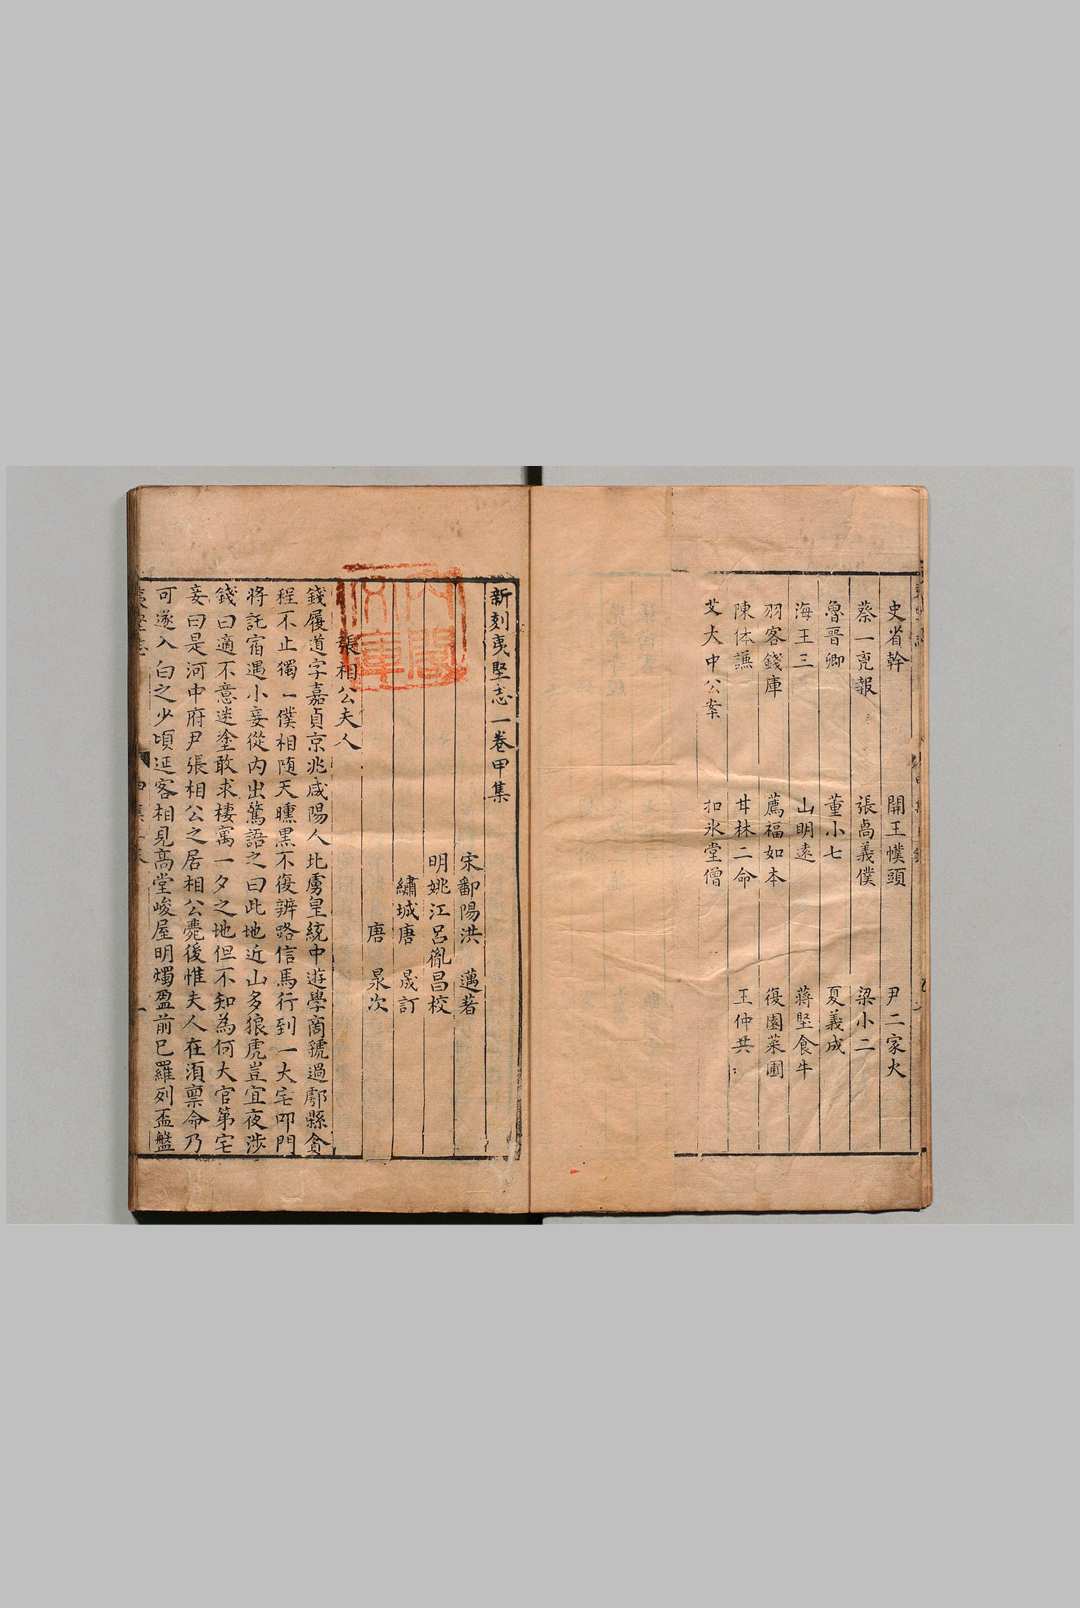 史省幹 開王幞頭 尹二家火
蔡一克報 張咼義僕 梁小二
魯晋卿 董小七 夏義成
海王三 山明遠 蔣堅食牛
羽客錢庫 薦福如本 復園菜圃
陳体謙 甘林二命 王仲共
艾大中公案 扣氷堂僧
新刻夷堅志一卷甲集
宋鄱陽洪 邁著
明姚江呂胤昌校
繡城唐 晟訂
唐 㫤次
張相公夫人
錢履道字嘉貞京兆咸陽人北虜皇統中遊學商虢過鄠縣貪
程不止獨一僕相随天曛黒不復辨路信馬行到一大宅叩門
將託宿遇小妾從内出驚語之曰此地近山多狼虎豈宜夜涉
錢曰適不意迷塗敢求棲寓一夕之地但不知為何大官第宅
妾曰是河中府尹張相公之居相公薨後惟夫人在湏稟命乃
可遂入白之少頃延客相見高堂峻屋明燭盈前巳羅列盃盤